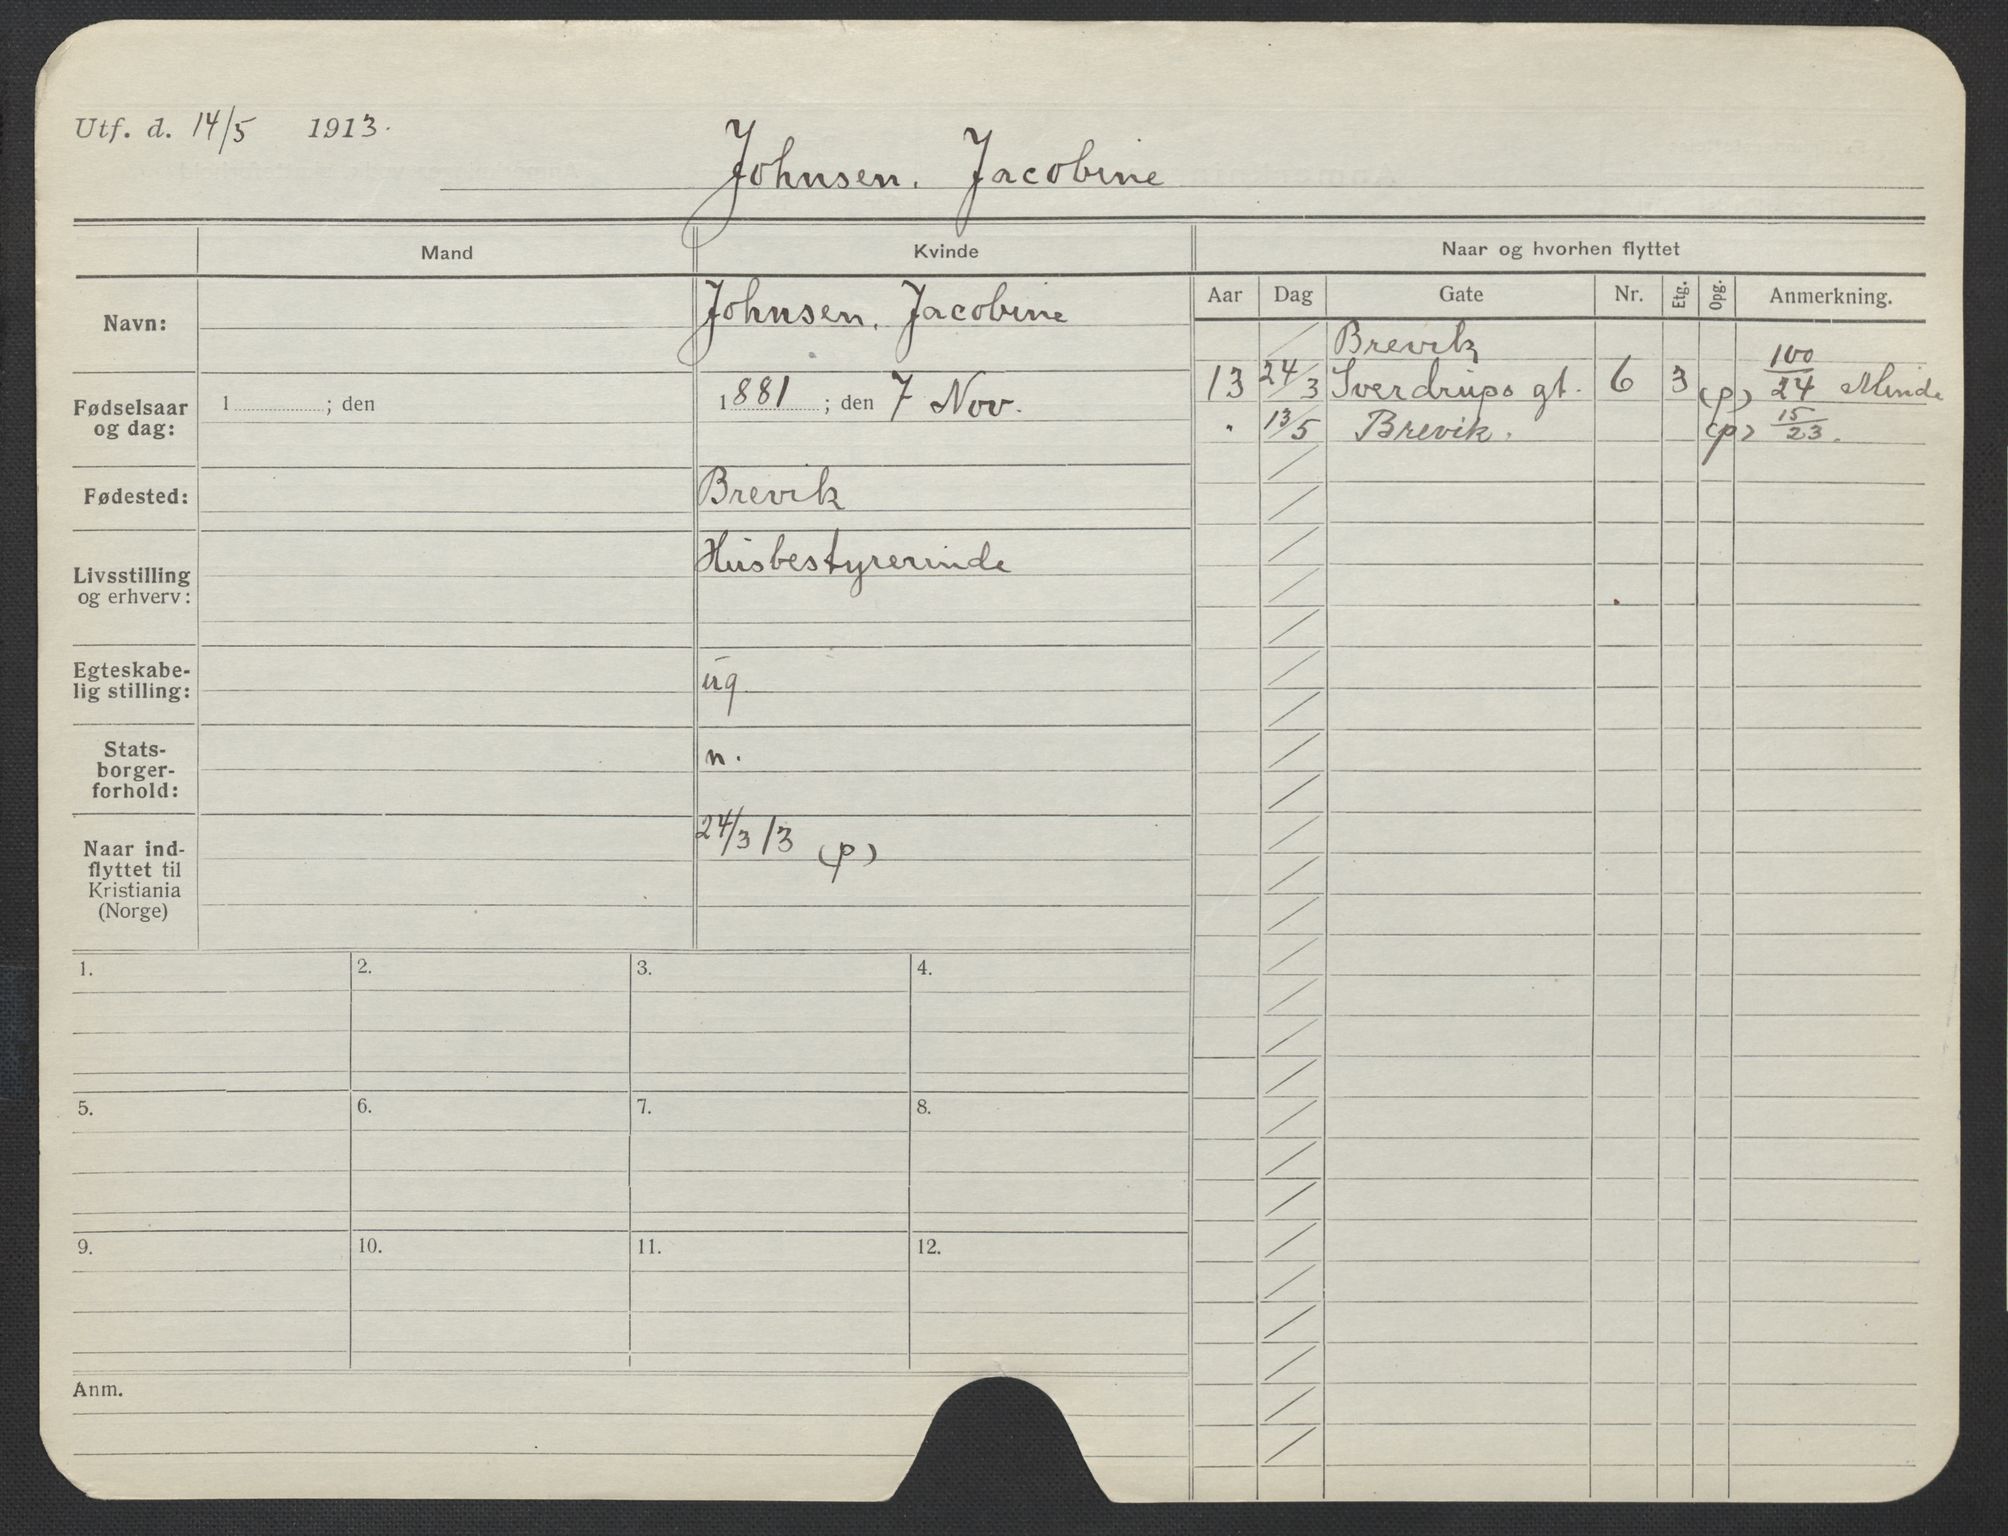 Utf. d. 14/5 1913.
Johnsen, Jacobine
Mand
Kvinde
Navn:
Johnsen, Jacobine
Fødselsaar og dag:
1 ; den
1881 ; den 7 Nov.
Fødested:
Brevik
Livsstilling og erhverv:
Husbestyrerinde
Egteskabe-
lig stilling:
ug
Stats-
borger-
forhold:
n.
Naar ind-
flyttet til
Kristiania
(Norge)
24/3 13 (p)
1. 2. 3. 4.
5. 6. 7. 8.
9. 10. 11. 12.
Anm.
Naar og hvorhen flyttet
Aar Dag Gate Nr. Etg. Opg. Anmerkning.
/ Brevik
13 24/3 Sverdrups gt. 6 3 (p) 100/24 Minde
" 13/5 Brevik. (p) 15/23.